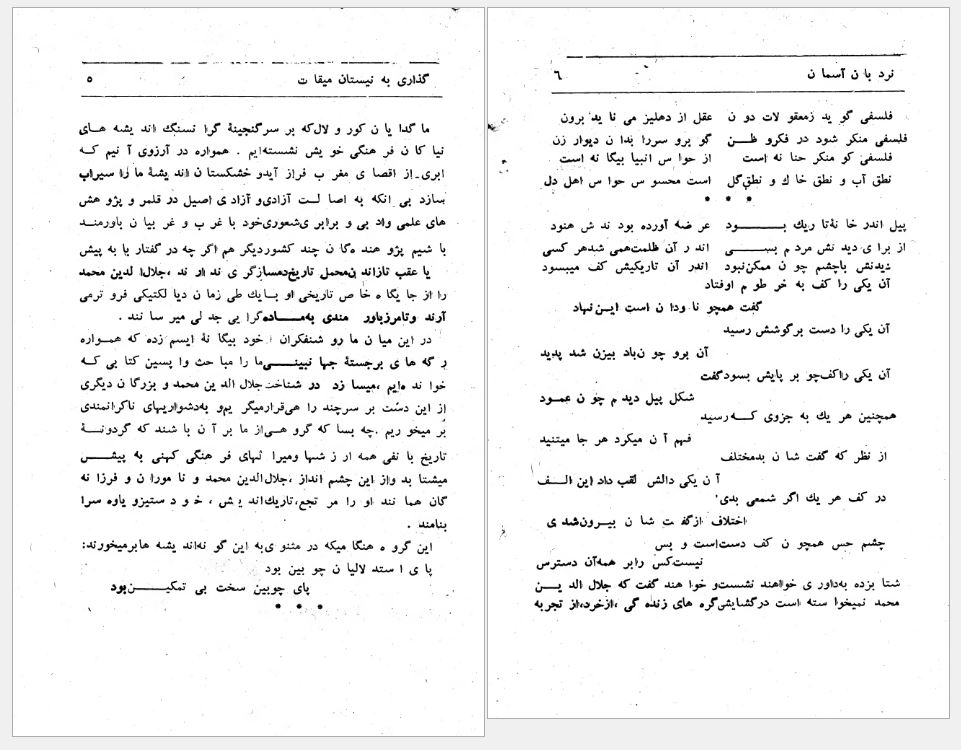 گذاری به نیستان میقات
۵
ما گدایان کور و لال‌که بر سرگنجینهٔ گرانسنگ اندیشه های
نیاکان فرهنگی خویش نشسته‌ایم . همواره در آرزوی آنیم که
ابری‌ـ‌از اقصای مغرب فرازآید‌و خشکستان اندیشهٔ ما را سیراب
سازد بی آنکه به اصالت آزادی‌و آزادی اصیل در قلمر و پژوهش
های علمی وادبی و برابری‌شعوری‌خود با غرب و غربیان باورمند
باشیم پژوهنده‌گان چند کشوردیگر هم اگر چه در گفتار پا به پیش
یا عقب تازاندن‌محمل تاریخ‌دهسازگری ندارند ،جلال‌الدین محمد
را از جایگاه خاص تاریخی او بایك طی زمان دیالکتیکی فروترمی
آرند وتامرزباور مندی به‌مــاده‌گرایی جدلی میرسانند .
در این میان ما روشنفکران ازخود بیگانهٔ ایسم زده که همواره
رگه های برجستهٔ جهانبینــی‌ما را مباحث واپسین کتابی که
خوانده‌ایم ،میسازد در شناخت‌جلال الدین محمد و بزرگان دیگری
از این دست بر سرچند راهی‌قرارمیگریم‌و به‌دشواریهای ناگرانمندی
بر میخوریم .چه بسا که گروهی‌از ما بر آن باشند که گردونــهٔ
تاریخ با نفی همه ارزشها ومیراثهای فرهنگی کهنی به پیشــ
میشتابد واز این چشم انداز ،جلال‌الدین محمد و نامورا ن و فرزانه
گان همانند او را مرتجع،تاریك‌اندیش ، خود ستیزو یاوه سرا
بنامند .
این گروه هنگامیکه در مثنوی‌به این گونه‌اندیشه هابرمیخورند:
پای استدلالیان چوبین بود
پای چوبین سخت بی تمکیــن‌بود
* * *
نردبان آسمان
٦
فلسفی گوید زمعقولات دون عقل از دهلیز می ناید برون
فلسفی منکر شود در فکرو ظــن گو برو سررا بدان دیوار زن
فلسفی کو منکر حنانه است از حواس انبیا بیگانه است
نطق آب و نطق خاك و نطق‌گل است محسوس حواس اهل دل
* * *
پیل اندر خانهٔ‌تاریك بــود عرضه آورده بودندش هنود
از برای دیدنش مردم بســی اندرآن ظلمت‌همی شدهر کسی
دیدنش باچشم چون ممکن‌نبود اندر آن تاریکیش کف میبسود
آن یکی را کف به خرطوم اوفتاد
گفت همچو ناودان است ایــن‌نهاد
آن یکی را دست برگوشش رسید
آن برو چون‌باد بیزن شد پدید
آن یکی راکف‌چو بر پایش بسودگفت
شکل پیل دیدم چون عمود
همچنین هر یك به جزوی کــه‌رسید
فهم آن میکرد هر جا میتنید
از نظر که گفت شان بدمختلف
آن یکی دالش لقب داد این الــف
در کف هر یك اگر شمعی بدی
اختلاف ازگفت شان بیــرون‌شدی
چشم حس همچون کف دست‌است و بس
نیست‌کس رابر همه‌آن دسترس
شتابزده به‌داوری خواهند نشست‌و خواهند گفت که جلال الدیــن
محمد نمیخواسته است درگشایش‌گره های زنده گی ،ازخرد،از تجربه